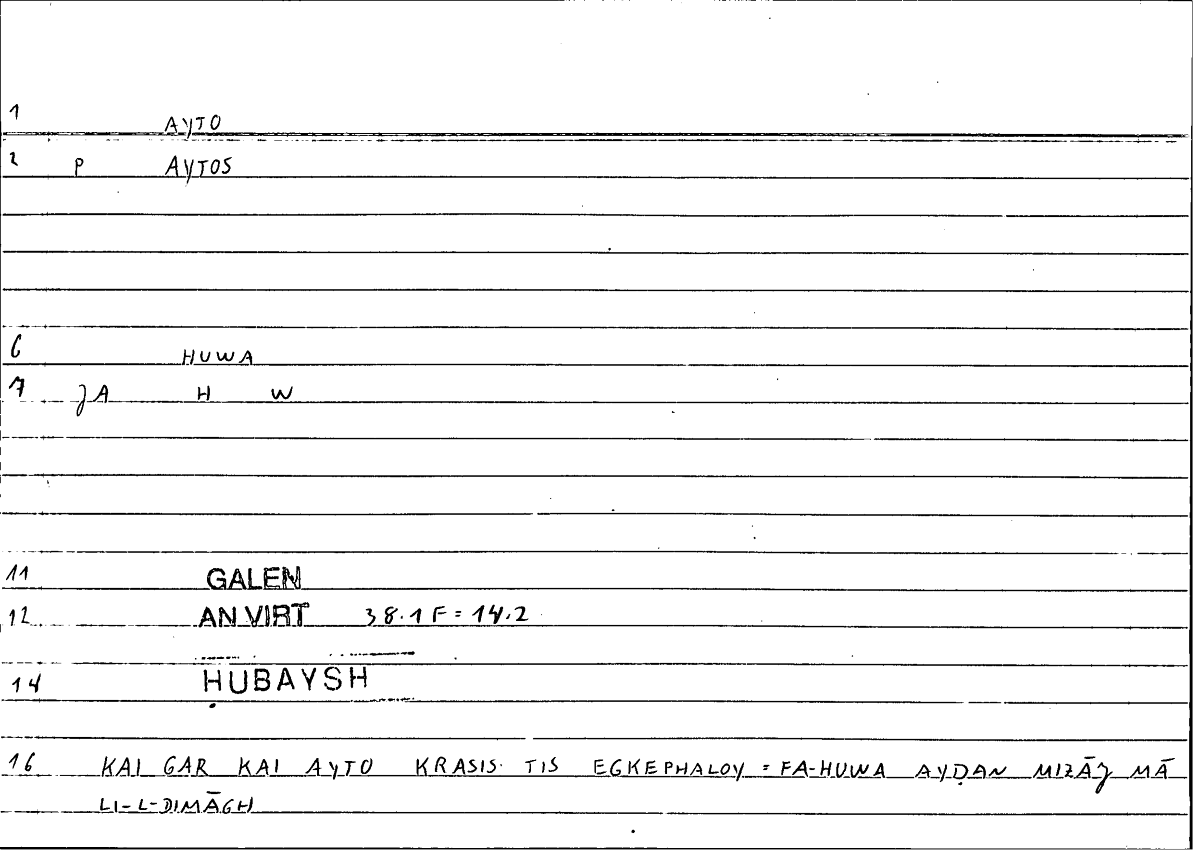 1 AYTO
2 P AYTOS
6 HUWA
7 JA H W
11 GALEN
12 AN VIRT 38.1 F = 14.2
14 ḤUBAYSH
16 KAI GAR KAI AYTO KRASIS TIS EGKEPHALOY = FA-HUWA AYḌAN MIZĀJ MĀ
LI-L-DIMĀGH